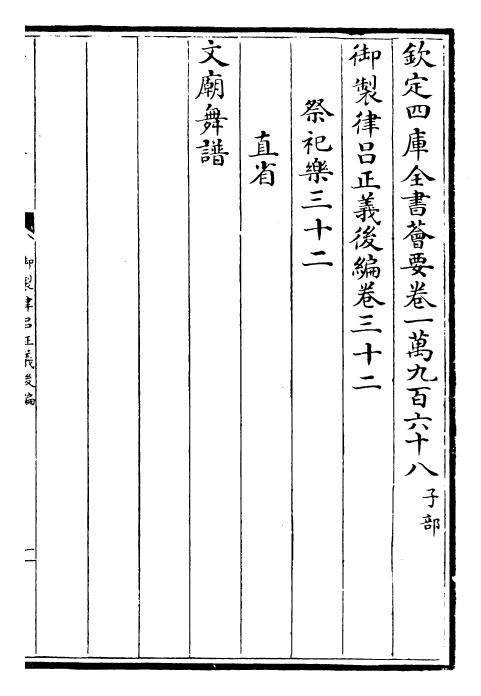 欽定四庫全書薈要卷一萬九百六十八子部
御製律呂正義後編卷三十二
祭祀樂三十二
直省
文廟舞譜
御製律呂正義後編
一